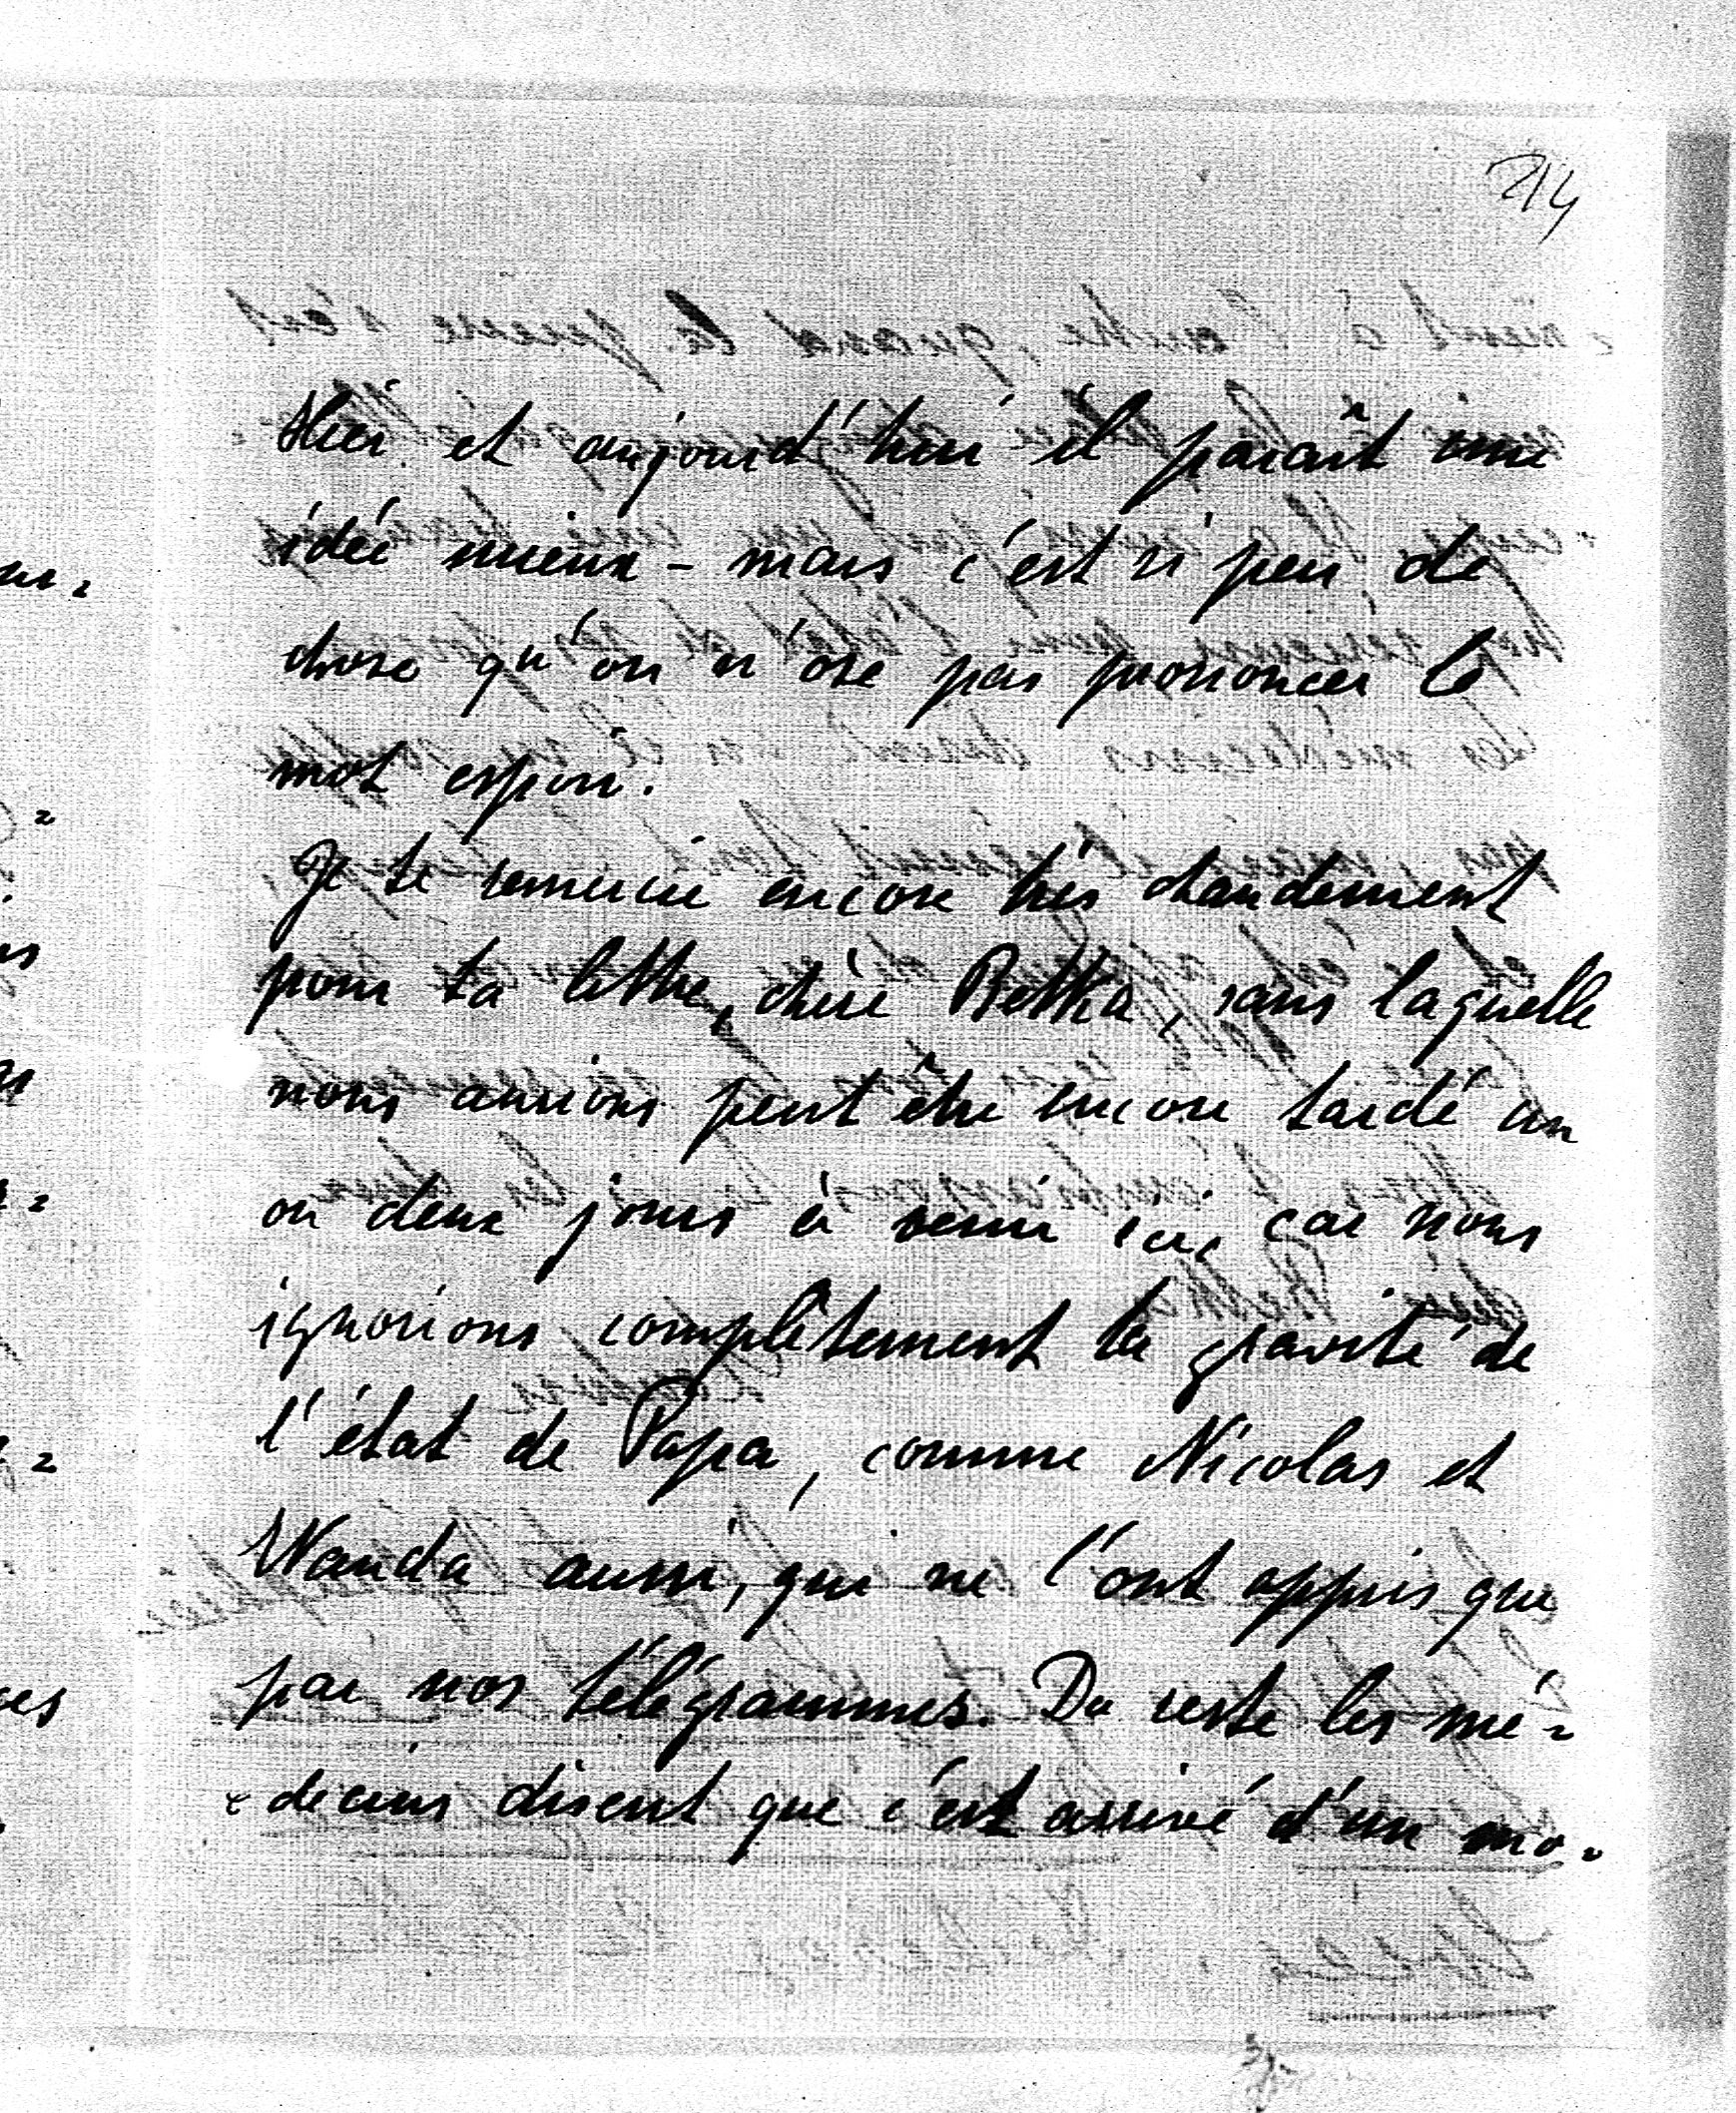 214
Hier et aujourd'hui il paraît une
idée mieux - mais c'est si peu de
chose qu'on n'ose pas prononcer le
mot espoir.
Je te remercie encore très chaudement
pour ta lettre, chère Betka, sans laquelle
nous aurions peut être encore tardé un
ou deux jours à venir ici, car nous
ignorions complètement la gravité de
l'état de Papa, comme Nicolas et
Wanda aussi, qui ne l'ont appris que
par nos télégrammes. Du reste les mé-
-decins disent que c'est arrivé d'un mo-